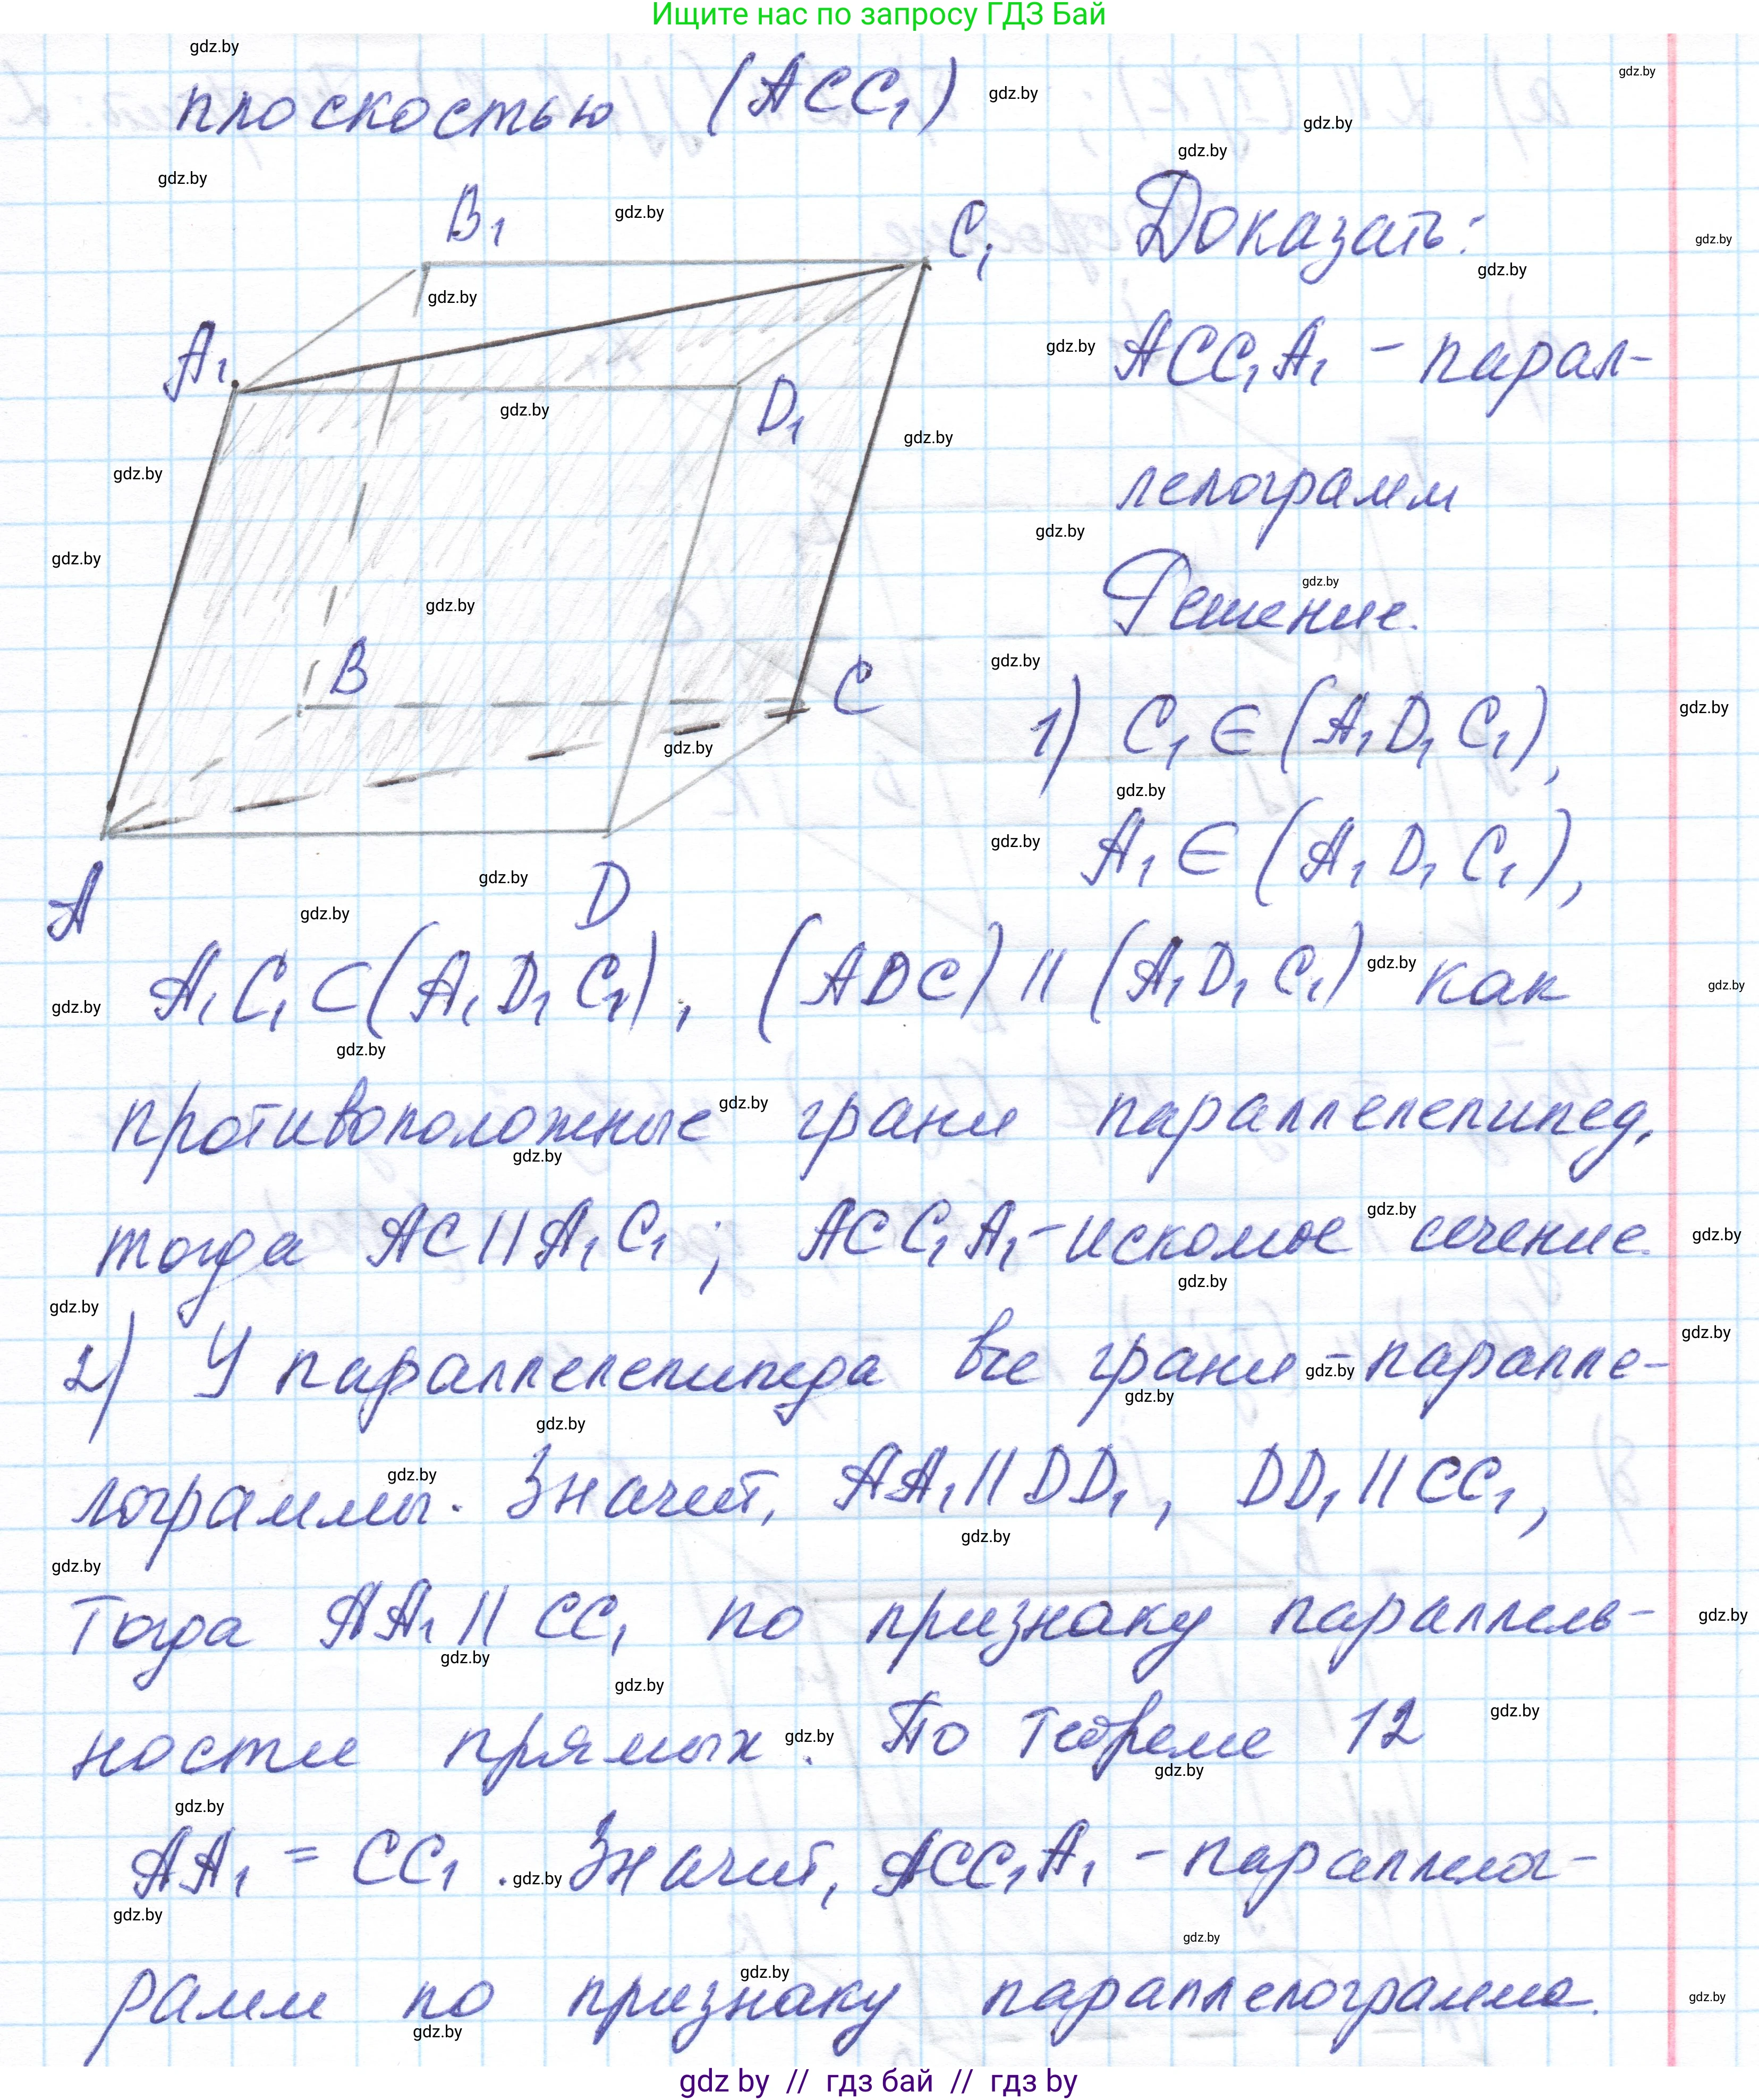 Ищите нас по запросу ГДЗ Бай
плоскостью (ACC₁)
B₁
C₁
A₁
D₁
B
C
A
D
Доказать:
ACC₁A₁ - парал-
лелограмм
Решение.
1) C₁ ∈ (A₁D₁C₁),
A₁ ∈ (A₁D₁C₁),
A₁C₁ ⊂ (A₁D₁C₁), (ADC) || (A₁D₁C₁) как
противоположные грани параллелепипед,
тогда AC || A₁C₁; ACC₁A₁ - искомое сечение.
2) У параллелепипеда все грани - паралле-
лограммы. Значит, AA₁ || DD₁, DD₁ || CC₁,
Тогда AA₁ || CC₁ по признаку параллель-
ности прямых. По теореме 12
AA₁ = CC₁. Значит, ACC₁A₁ - параллелог-
рамм по признаку параллелограмма.
gdz by // гдз бай // гдз by